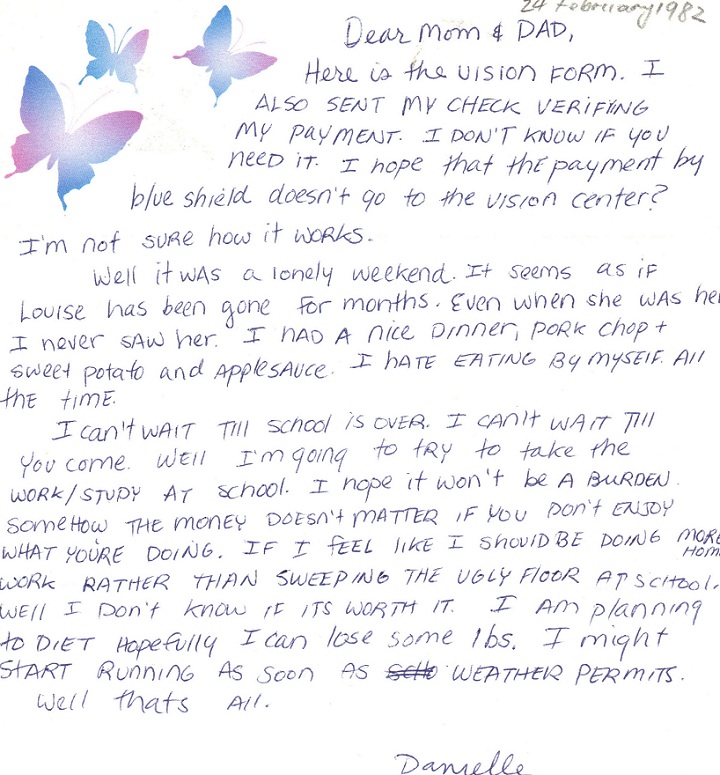 24 February 1982
Dear Mom & DAD,
Here is the VISION FORM. I
ALSO SENT MY CHECK VERIFYING
MY PAYMENT. I DON'T KNOW IF YOU
NEED IT. I hope that the payment by
blue shield doesn't go to the vision center?
I'm not SURE how it WORKS.
Well it WAS a lonely weekend. It seems as if
Louise has been gone for months. Even when she WAS her
I never SAW her. I HAD A nice Dinner, PORK Chop +
sweet potato and APPLESAUCE. I HATE EATING By MYSELF All
the TIME.
I can't WAIT Till school is OVER. I CAN'T WAIT Till
You come. Well I'm going to TRY to take the
WORK/STUDY AT school. I hope it won't be A BURDEN.
SOMEHOW THE MONEY DOESN'T MATTER IF YOU DON'T ENJOY
WHAT YOU'RE DOING. IF I FEEL LIKE I SHOULD BE DOING MORE
HOM
WORK RATHER THAN SWEEPING THE UGLY FLOOR AT SCHOOL,
WELL I DON'T KNOW IF ITS WORTH IT. I AM planning
to DIET Hopefully I can lose some lbs. I might
START RUNNING AS soon AS WEATHER PERMITS.
Well thats All.
Danielle